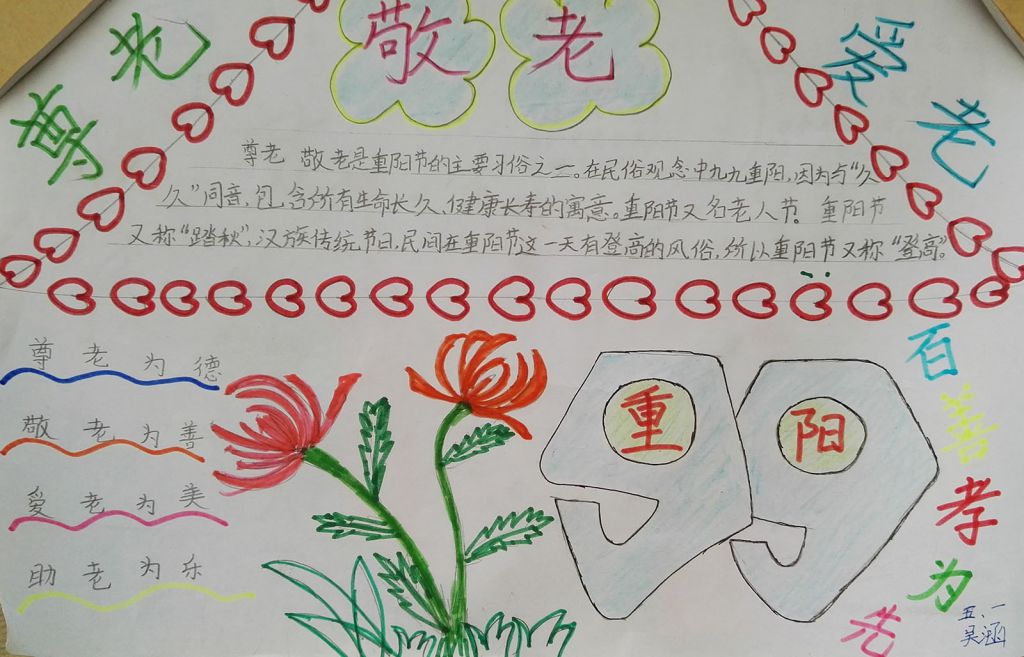 尊老
敬老
爱老
尊老 敬老是重阳节的主要习俗之一。在民俗观念中九九重阳,因为与“久
久”同音,包含所有生命长久、健康长寿的寓意。重阳节又名老人节。重阳节
又称“踏秋”,汉族传统节日,民间在重阳节这一天有登高的风俗,所以重阳节又称“登高”。
尊老为德
敬老为善
爱老为美
助老为乐
重阳
百善孝为先
五、一
吴涵